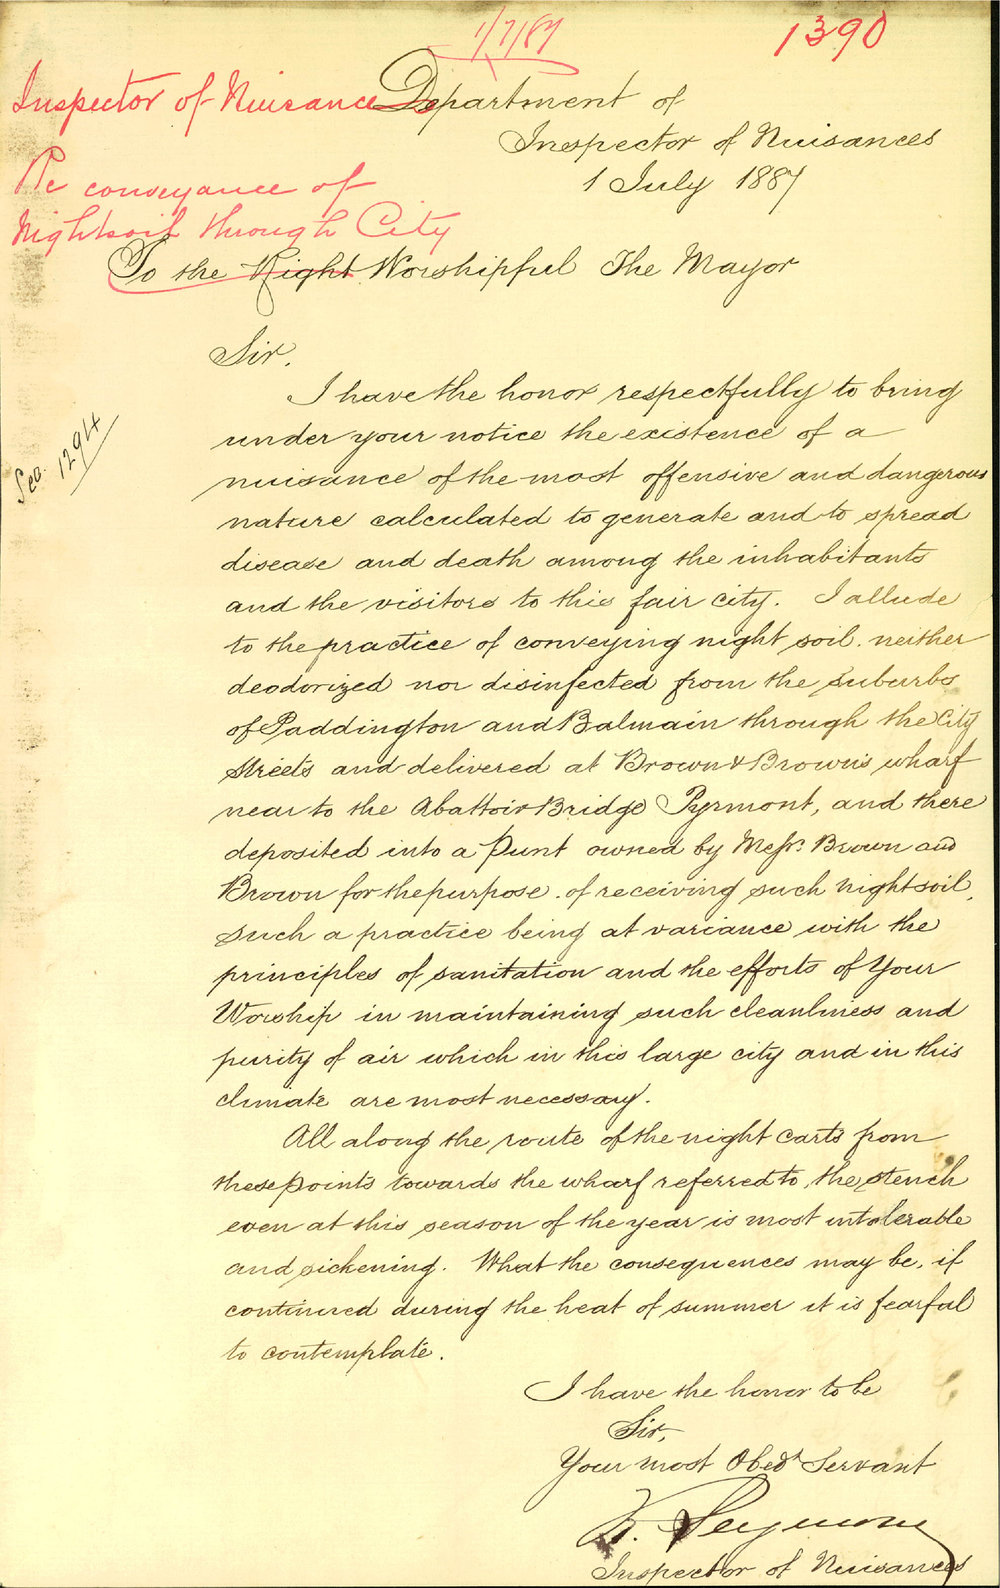 1/7/87
1390
Inspector of Nuisances
Department of
Inspector of Nuisances
1 July 1887
Re conveyance of
Nightsoil through City
To the Right Worshipful The Mayor
Sir.
I have the honor respectfully to bring
under your notice the existence of a
nuisance of the most offensive and dangerous
nature calculated to generate and to spread
disease and death among the inhabitants
and the visitors to this fair city. I allude
to the practice of conveying night soil neither
deodorized nor disinfected from the suburbs
of Paddington and Balmain through the City
Streets and delivered at Brown & Brown's wharf
near to the Abattoir Bridge Pyrmont, and there
deposited into a Punt owned by Messrs. Brown and
Brown for the purpose of receiving such nightsoil,
such a practice being at variance with the
principles of sanitation and the efforts of Your
Worship in maintaining such cleanliness and
purity of air which in this large city and in this
climate are most necessary.
All along the route of the night carts from
these points towards the wharf referred to, the stench
even at this season of the year is most intolerable
and sickening. What the consequences may be, if
continued during the heat of summer it is fearful
to contemplate.
I have the honor to be
Sir,
Your most Obedt Servant
Seymour
Inspector of Nuisances
1294